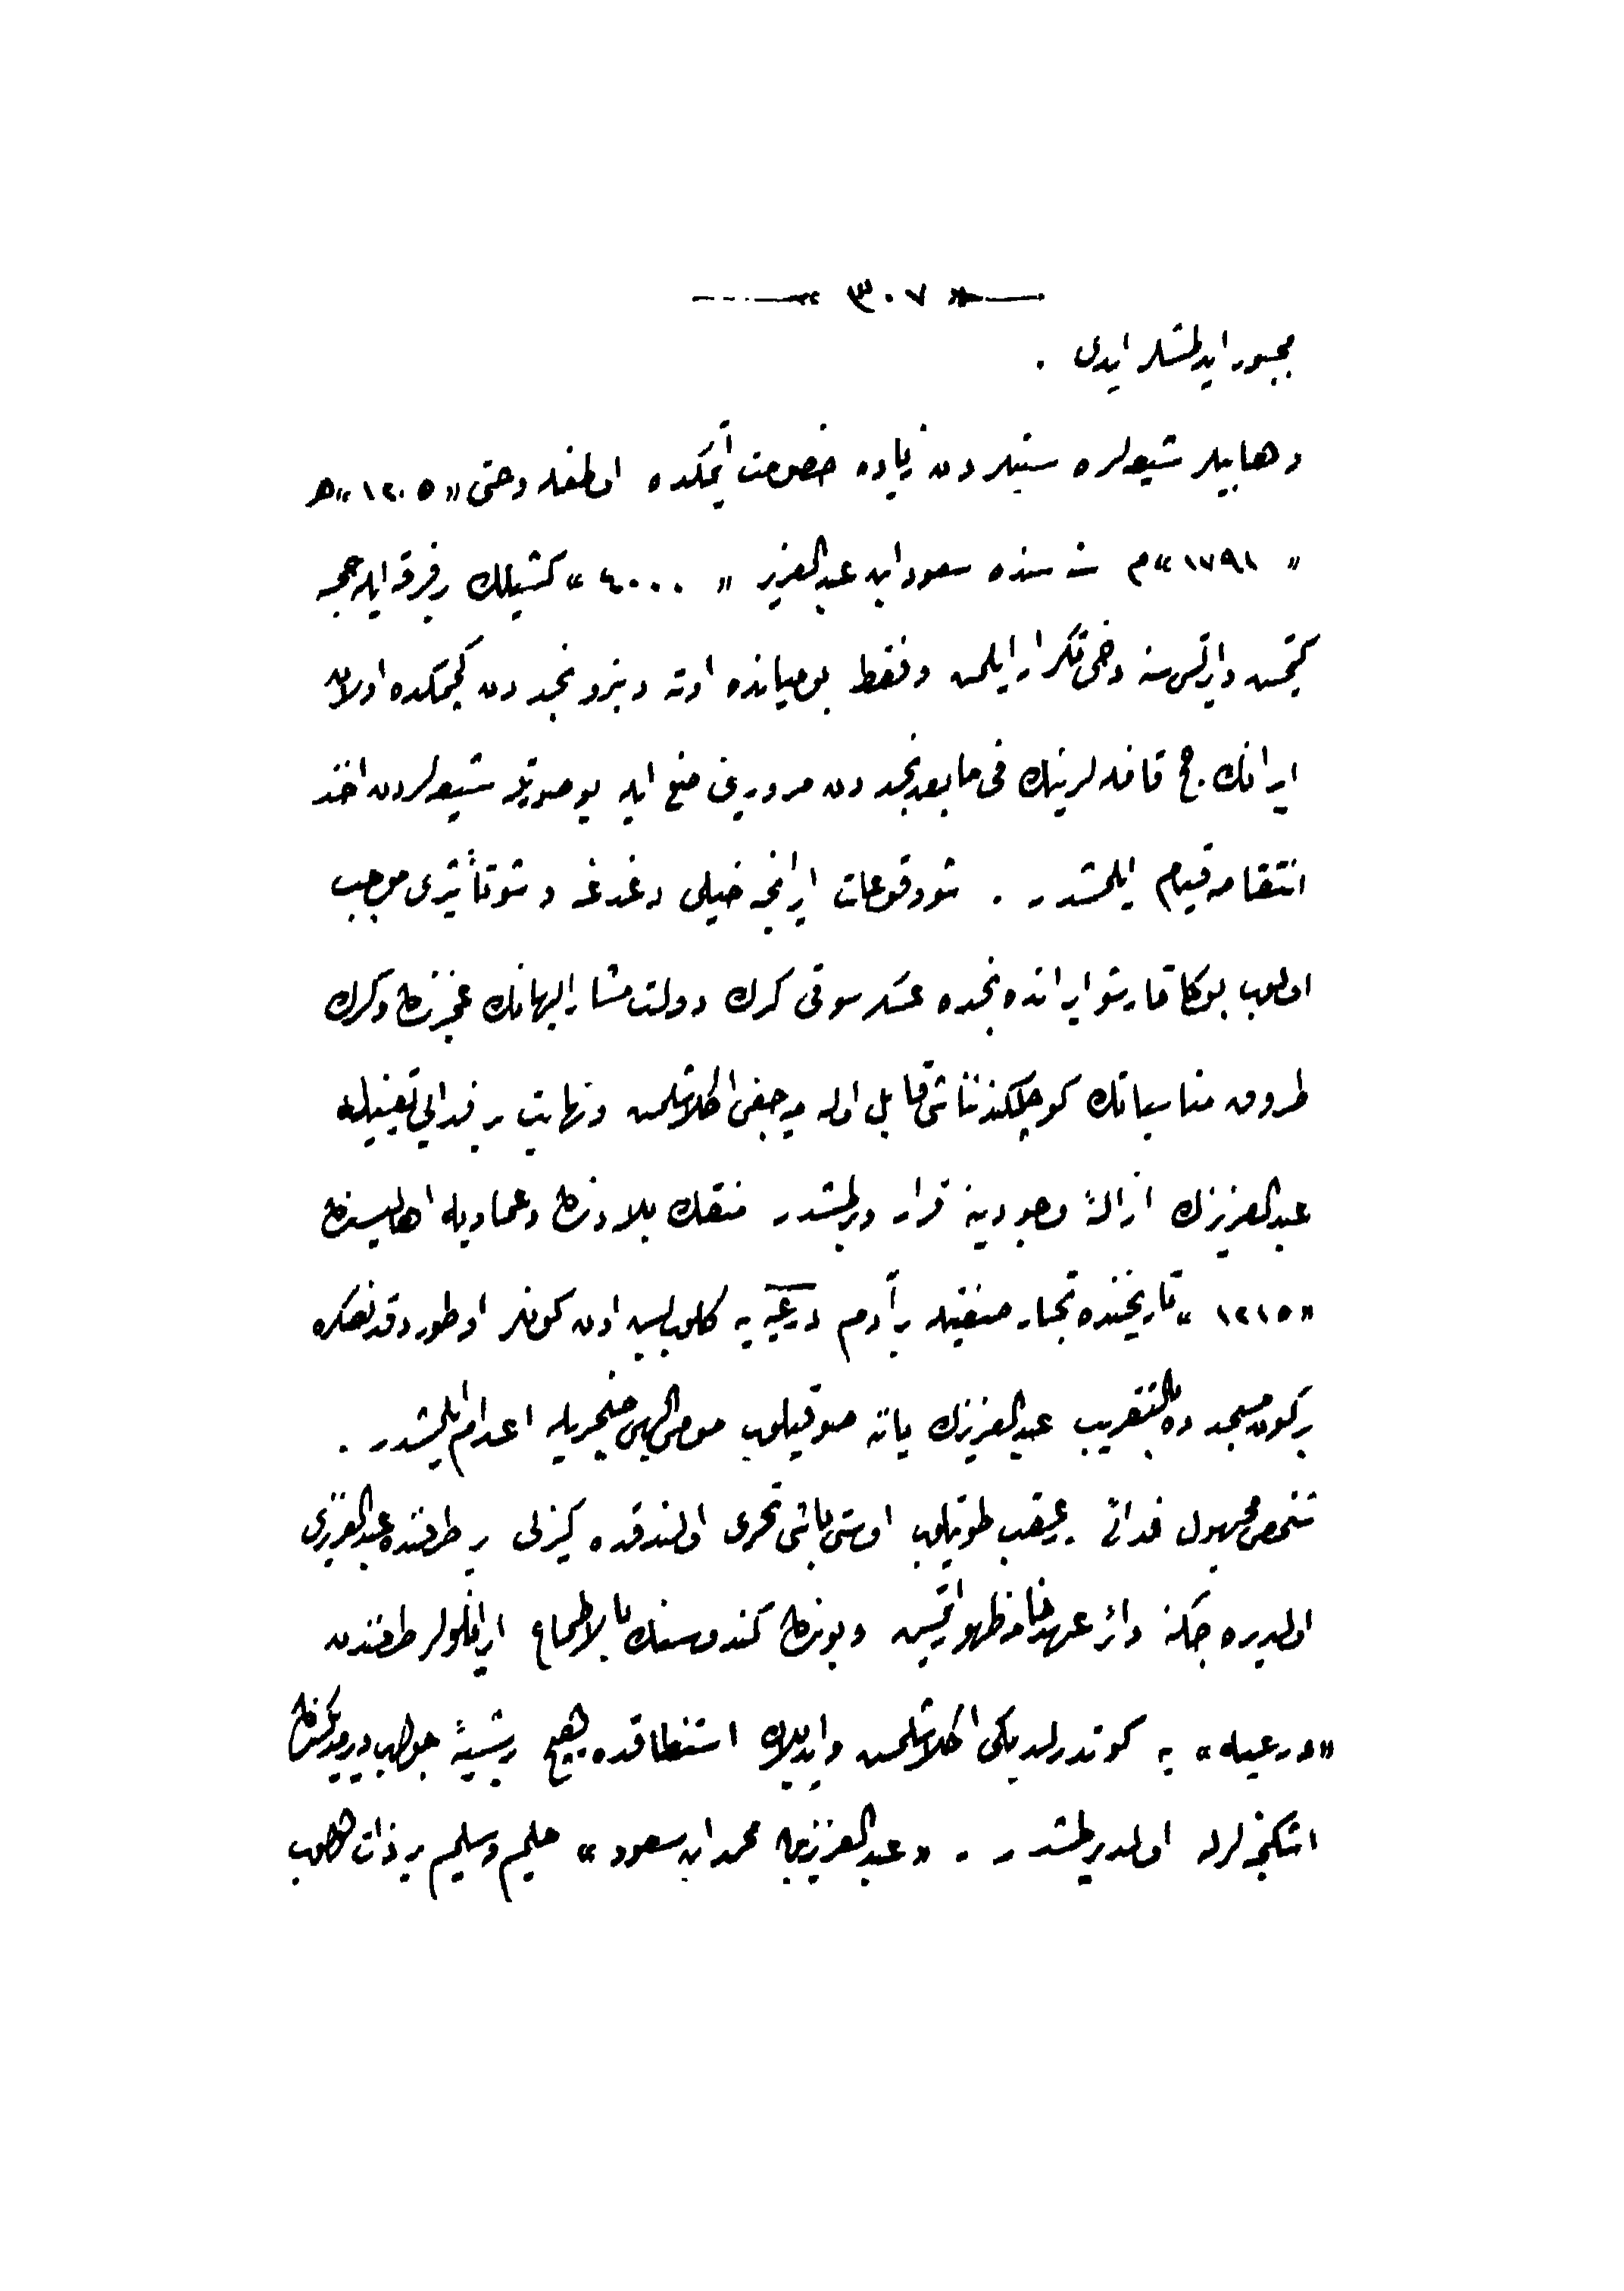 ٣٠٧
مجبور ایدلمشلر ایدی .
وهابیلر شیعیلره سنیلردن زیاده خصومت ایتمکده اولمغله وحتی «١٢٠٥» ه
«١٧٩١» م سنه سنده سعود ابن عبدالعزیز «٤٠٠٠» کشیلك بر فرقه ایله حجه
کیتمش و تکرار ایلمش وفقط بو میانده اوته دنبرو نجددن کچمکده اولان
ایرانك حج قافله لرینك فی مابعد نجددن مرورینی منع ایله بو صورتله شیعیلردن اخذ
انتقامه قیام ایلمشدر . شو وقوعات ایرانجه خیلی دغدغه و سوء تأثیری موجب
اولوب بوکا قارشو ایراندن نجده عسکر سوقی کرك دولت مشار الیهانك عجزندن و کرك
طرق و مناسباتك کوچلکندن ناشی قابل اوله میه جغی اکلاشلمش ونهایت بر فدائی تعیینیله
عبدالعزیزك ازالهٔ وجودینه قرار ویرلمشدر منقك بلادندن وعمادیه اهالیسندن
«١٢١٥» تاریخنده تجار صفتیله بر آدم درعیه یه کلوب بش اون کونلر اوطوردقدنصکره
بر کون مسجدده بالتقریب عبدالعزیزك یاننه صوقیلوب مومی الیهی خنجریله اعدام ایلمشدر .
شخص مجهول فدائی بر عقب طوتیلوب اوستی باشی تحری اولندقده کیزلی بر طرفنده عبدالعزیزی
اولدیره جکنه دائر عهدنامه ظهور ایتمش وبوندن کندوسنك بالاطماع ایرانلولر طرفندن
«درعیه» یه کوندرلدیکی اکلاشلمش وایدیلان استنطاقده هیچ بر شیئه جواب ویرمدیکندن
اشکنجه لرله اولدیرلمشدر . «عبدالعزیز بن محمد ابن سعود» حلیم وسلیم بر ذات اولوب